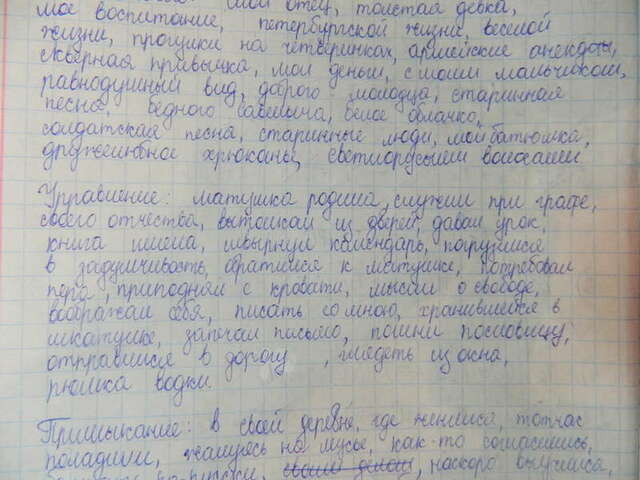 мое воспитание, мой отец, толстая девка,
петербургской жизни, веселой
жизни, прогулки на четвериньках, армейские анекдоты,
скверная привычка, мои деньги, с моим мальчиком,
равнодушный вид, дорого молодца, старинная
песня, бедного савельича, белое облачко,
солдатская песня, старинные люди, мой батюшка,
дружелюбное хрюканье, светлорусыми волосами
Управление: матушка родина, служил при графе,
своего отчества, вытолкал из дверей, давал урок,
книга имела, швырнул календарь, погрузился
в задумчивость, обратился к матушке, потребовал
пера, приподнял с кровати, мысли о свободе,
воображал себя, писать со мною, хранившейся в
шкатулке, запечал письмо, помни пословицу,
отправился в дорогу, глядеть из окна,
рюмка водки.
Примыкание: в своей деревне, где женился, тотчас
поладили, жалуюсь на мусье, как-то согласились,
наскоро выучился,